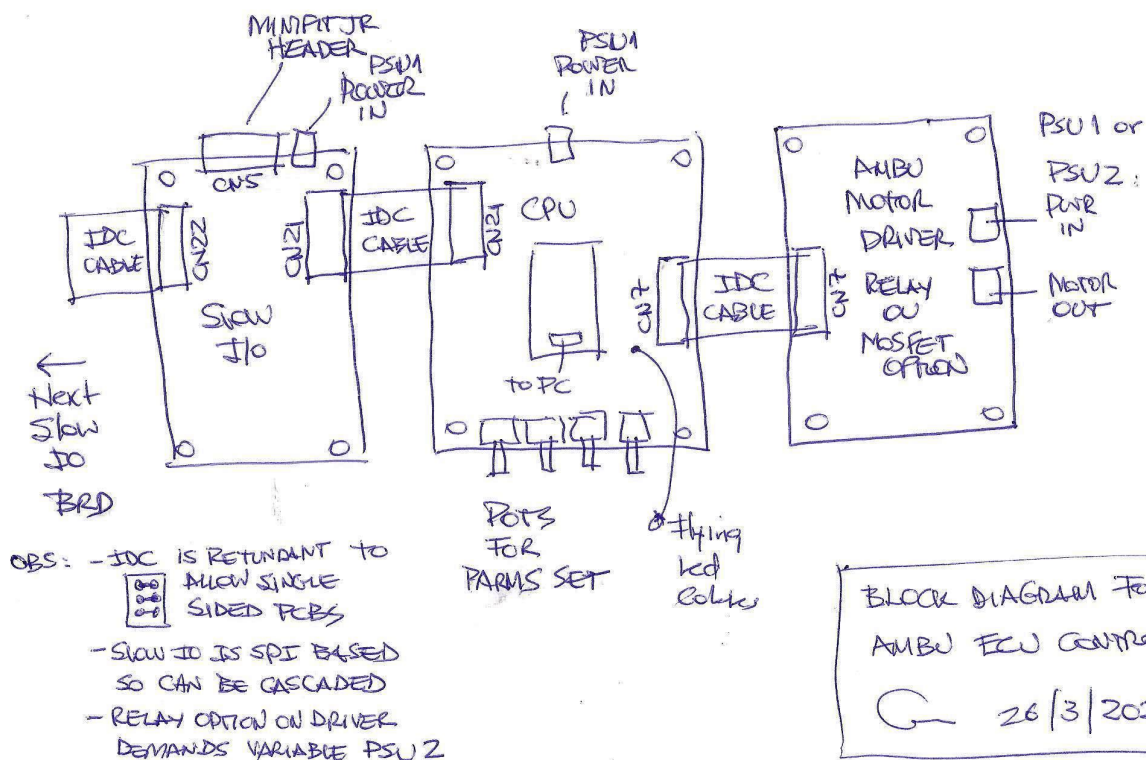 MINIFIT JR
HEADER
PSU1
POWER
IN
PSU1
POWER
IN
PSU1 or
PSU2:
PWR
IN
MOTOR
OUT
CN5
IDC
CABLE
CN22
CN21
IDC
CABLE
CN21
CPU
to PC
Slow
I/O
CN7
IDC
CABLE
CN7
AMBU
MOTOR
DRIVER
RELAY
OU
MOSFET
OPTION
←
Next
Slow
IO
BRD
POTS
FOR
PARMS SET
Flying
led
OBS: - IDC IS RETUNDANT to
ALLOW SINGLE
SIDED PCBS
- SLOW IO IS SPI BASED
SO CAN BE CASCADED
- RELAY OPTION ON DRIVER
DEMANDS VARIABLE PSU2
BLOCK DIAGRAM
AMBU ECU
26/3/